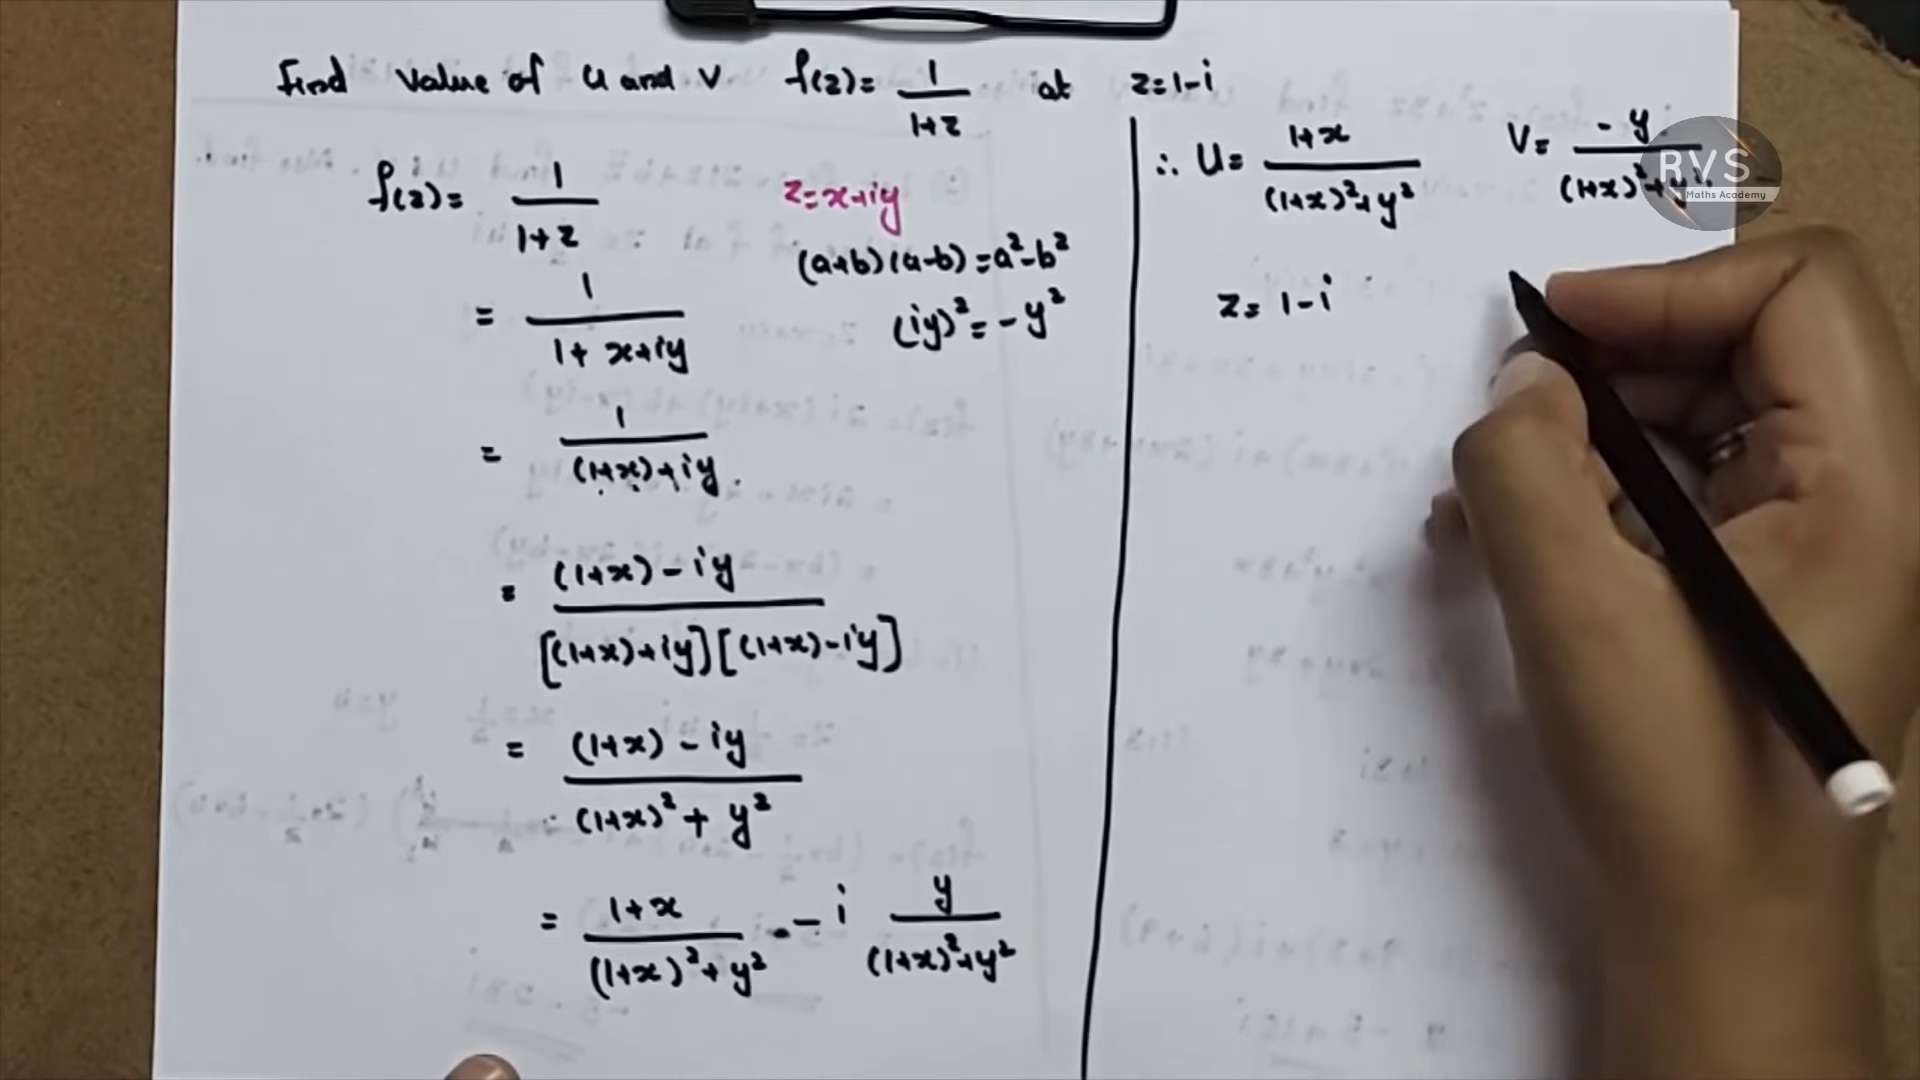 Find Value of U and V f(z)= 1/1+z at z=1-i
f(z)= 1/1+z
z=x+iy
(a+b)(a-b)=a²-b²
(iy)²=-y²
= 1/1+x+iy
= 1/(1+x)+iy
= (1+x)-iy/[(1+x)+iy][(1+x)-iy]
= (1+x)-iy/(1+x)²+y²
= 1+x/(1+x)²+y² - i y/(1+x)²+y²
∴ U= 1+x/(1+x)²+y² V= -y/(1+x)²+y²
z=1-i
RVS
Maths Academy